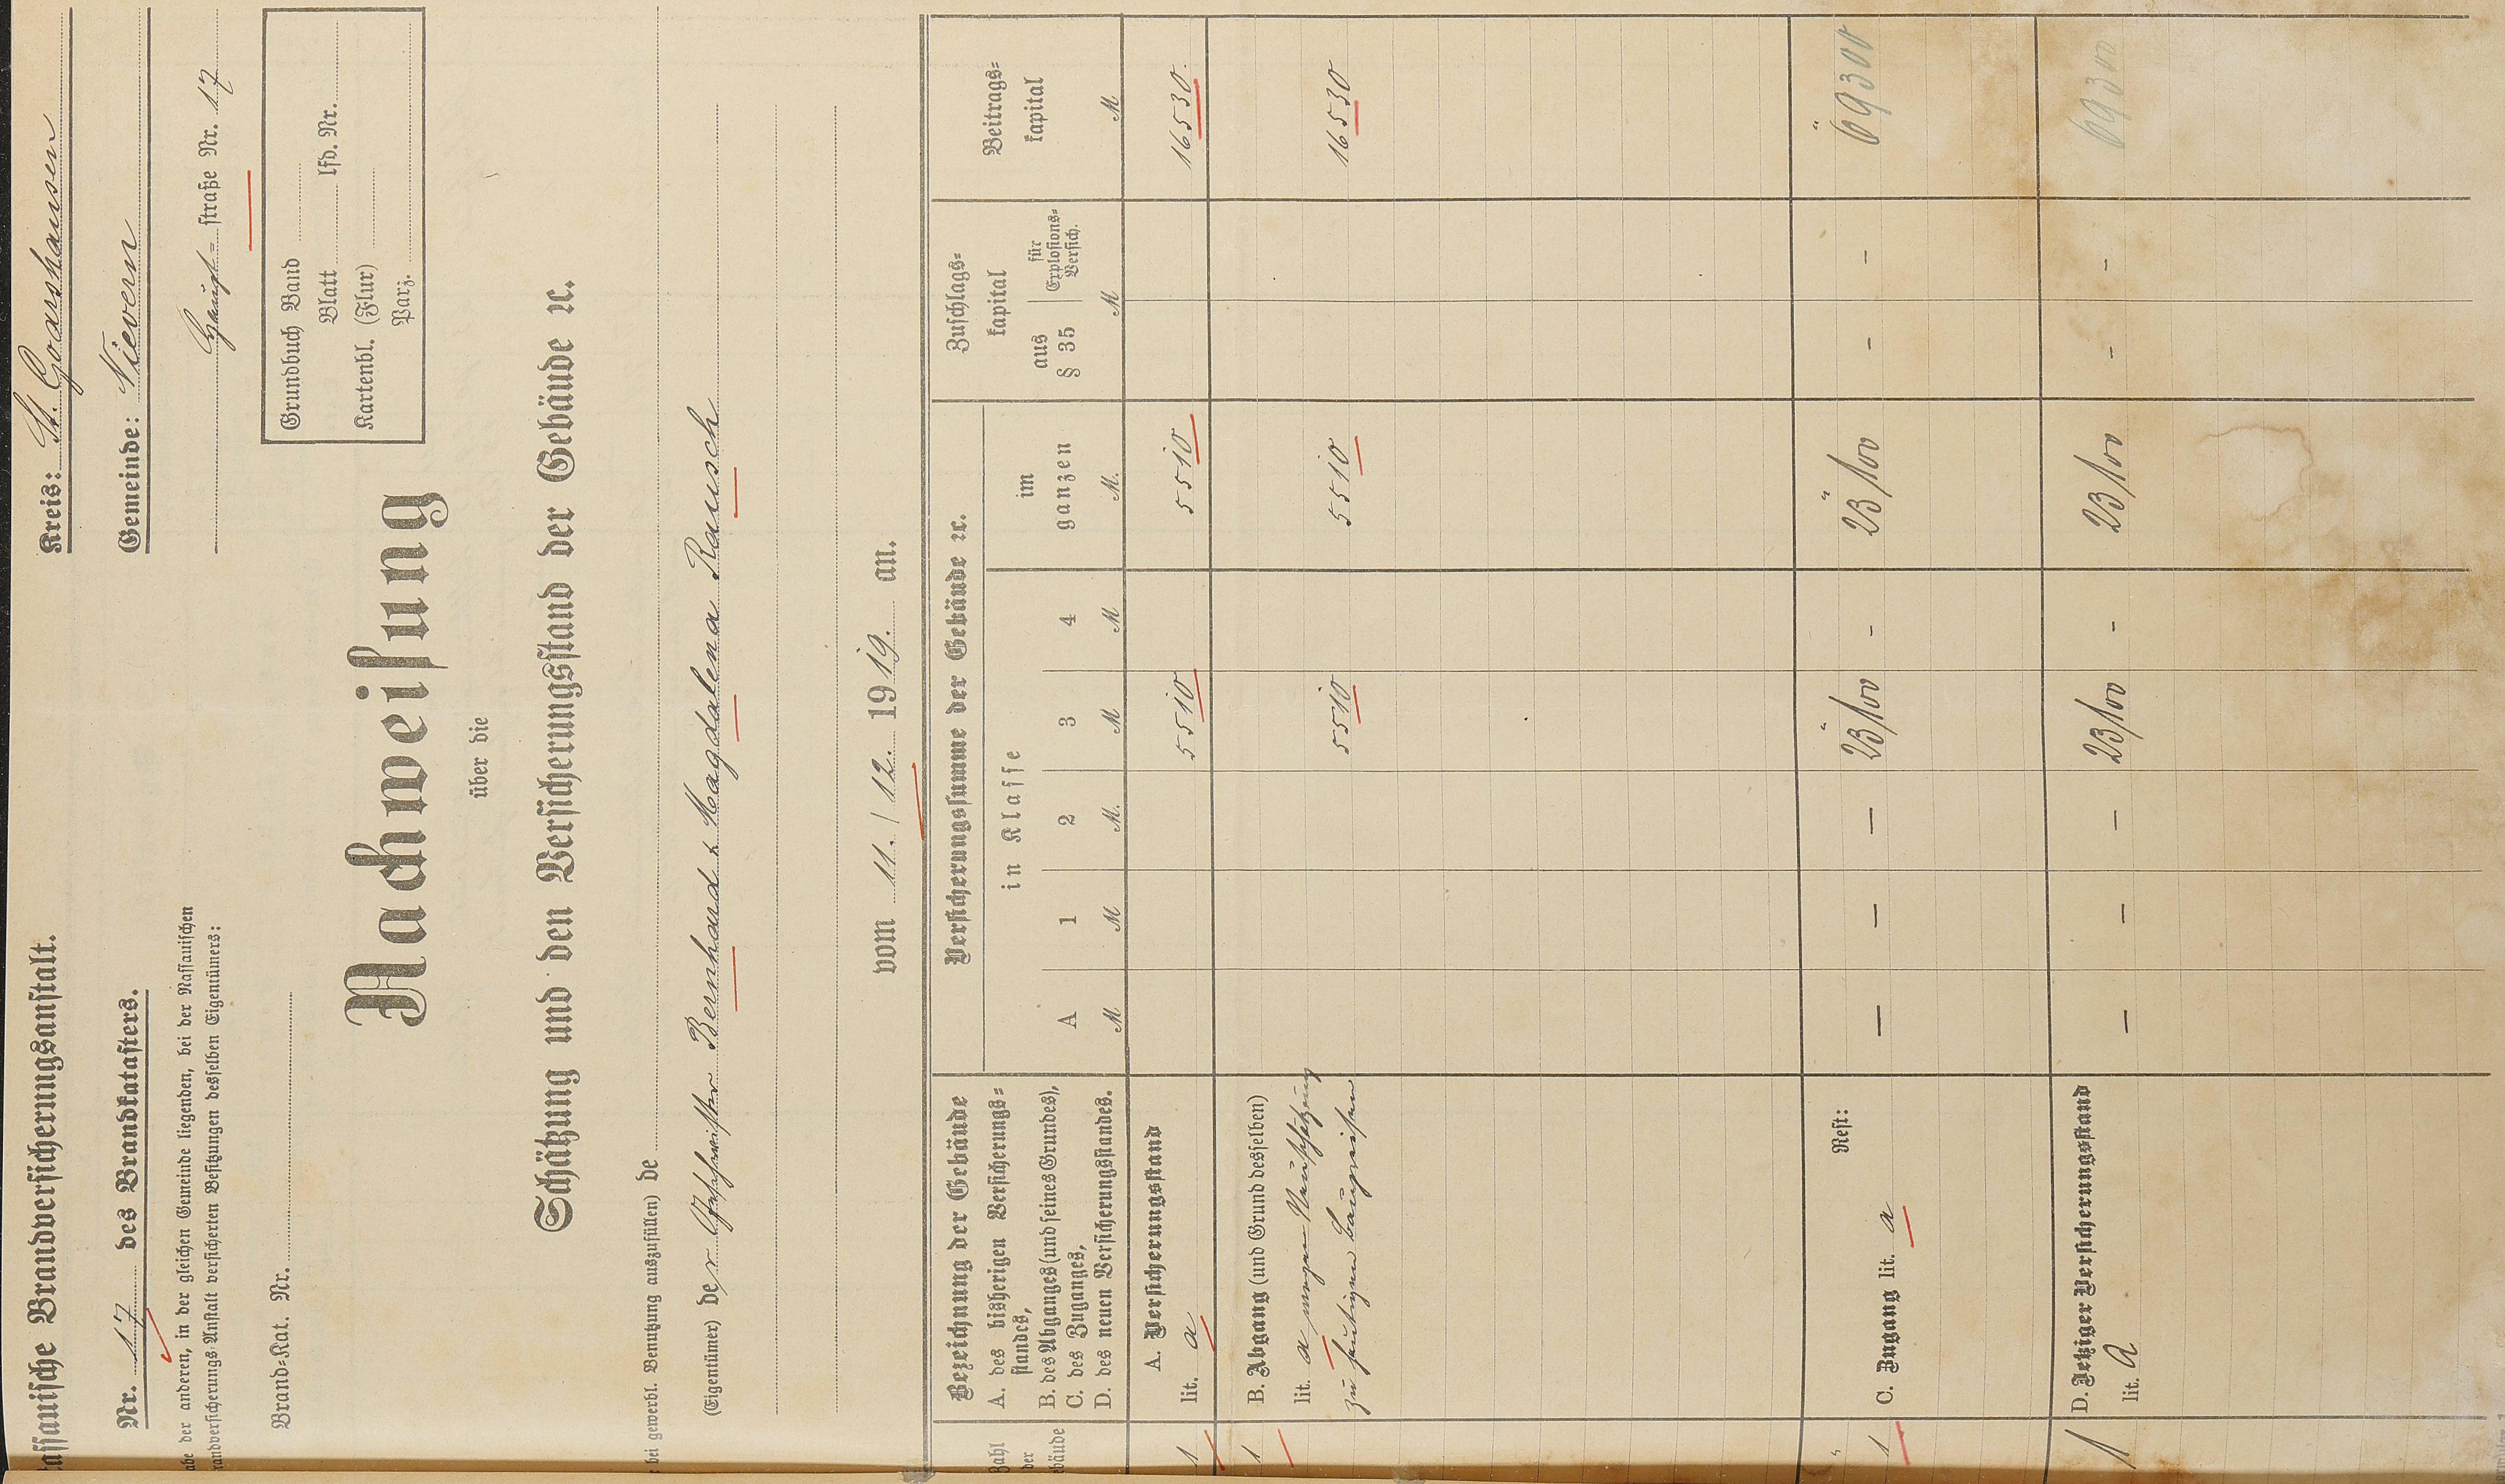 assauische Brandversicherungsanstalt.
Nr. 17 des Brandkatasters.
abe der anderen, in der gleichen Gemeinde liegenden, bei der Nassauischen
randversicherungs-Anstalt versicherten Besitzungen desselben Eigentümers:
Brand-Kat. Nr.
Kreis: St. Goarshausen
Gemeinde: Nievern
Haupt- straße Nr. 17
Grundbuch Band
Blatt lfd. Nr.
Kartenbl. (Flur)
Parz.
Nachweisung
über die
Schätzung und den Versicherungsstand der Gebäude ꝛc.
bei gewerbl. Benutzung auszufüllen) de
(Eigentümer) der Geschwister Bernhard u. Magdalena Rausch
vom 11. / 12. 1919. an.
Zahl
der
bäude
Bezeichnung der Gebäude
A. des bisherigen Versicherungs-
standes,
B. des Abganges (und seines Grundes),
C. des Zuganges,
D. des neuen Versicherungsstandes.
Versicherungssumme der Gebäude ꝛc.
in Klasse
A 1 2 3 4
im
ganzen
M M M. M M M.
Zuschlags-
kapital
aus
§ 35
für
Explosions-
Versich.
M
Beitrags-
kapital
M
A. Versicherungsstand
1 lit. a 5510 5510 16530.
1 B. Abgang (und Grund desselben)
lit. a wegen Neuschätzung 5510 5510 16530
zu heutigen Baupreisen
Rest: " " "
1 C. Zugang lit. a — — — 23100 - 23100 - - 69300
D. Jetziger Versicherungsstand
1 lit. a — — — 23100 - 23100 - - 69300